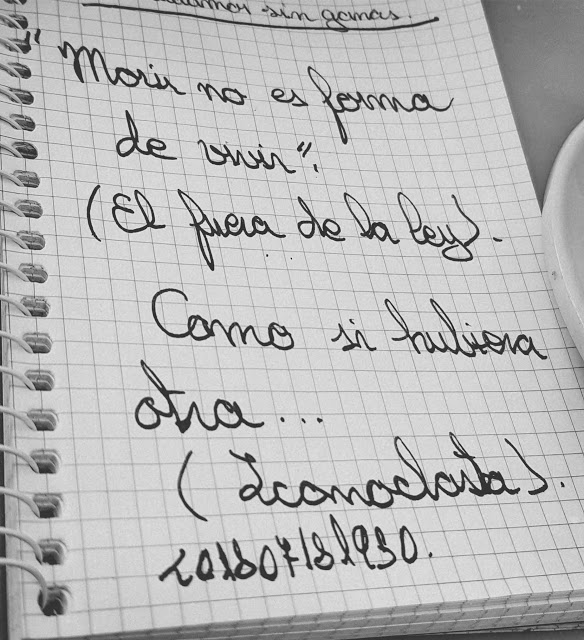 sin ganas.
"Morir no es forma
de vivir".
(El fuera de la ley).
Como si hubiera
otra...
(Iconoclasta).
201807131930.